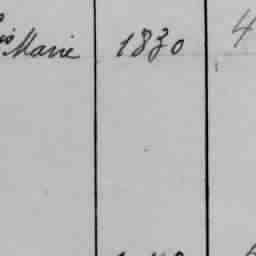 Marie 1830 4